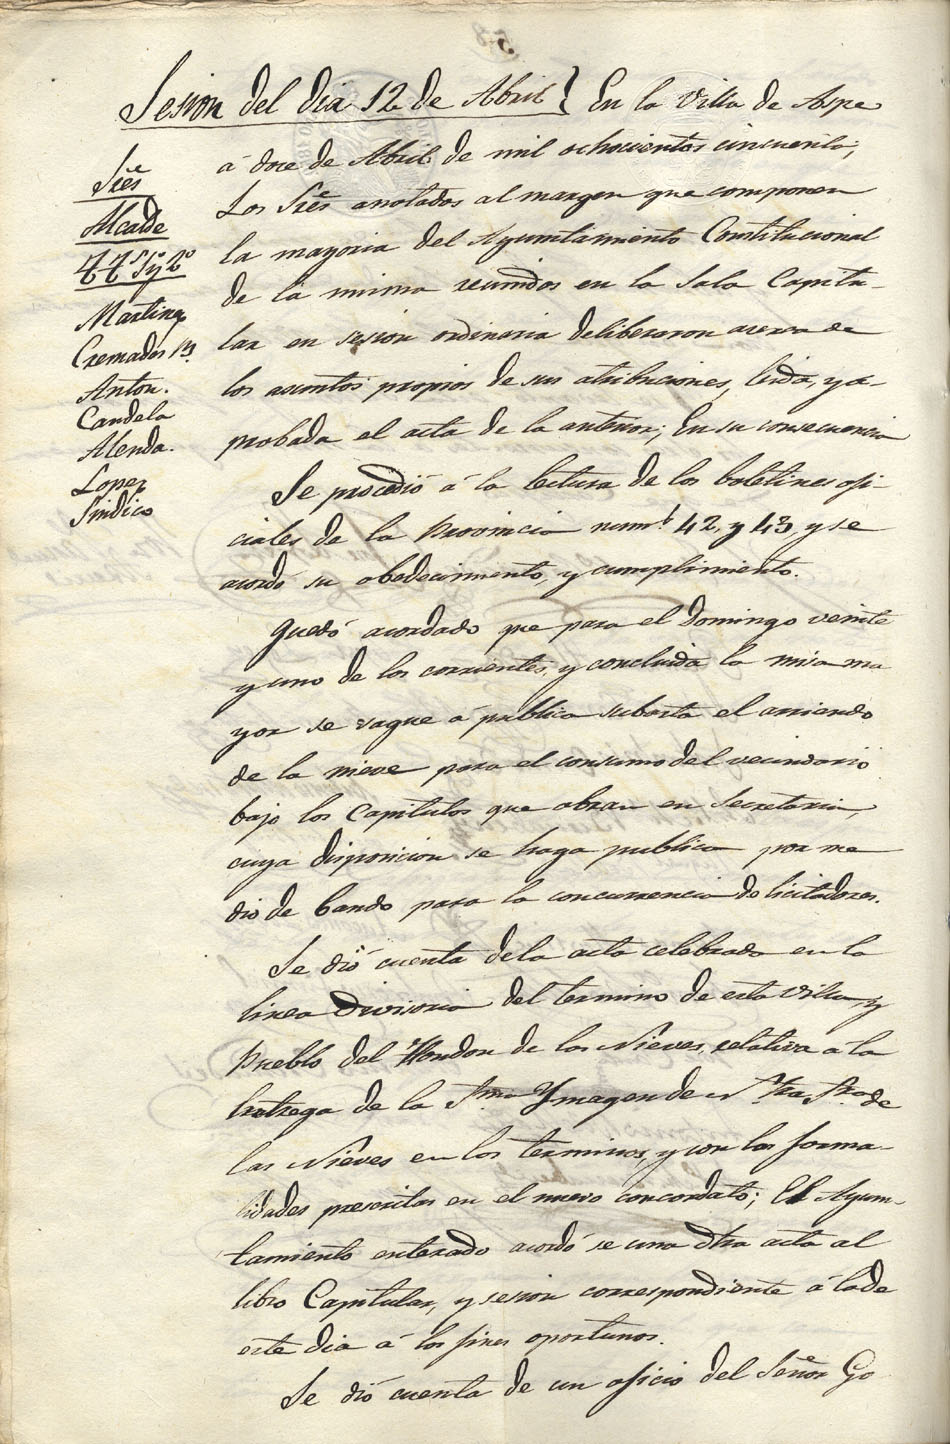 Sesion del dia 12 de Abril } En la Villa de Aspe
á doce de Abril de mil ochocientos cincuenta;
Los Sres anotados al margen que componen
la mayoria del Ayuntamiento Constitucional
de la misma reunidos en la Sala Capitu-
lar en sesion ordinaria deliberaron acerca de
los asuntos propios de sus atribuciones, leida, y a-
probada el acta de la anterior; En su consecuencia
Sres
Alcalde
TTs 1º y 2º
Martinez
Cremades
Anton.
Candela
Alenda.
Lopez
Sindico
Se procedió á la lectura de los boletines ofi-
ciales de la Provincia nums 42, y 43, y se
acordó su obedecimiento, y cumplimiento.
Quedó acordado que para el Domingo veinte
y uno de los corrientes, y concluida la misa ma
yor se saque á publica subasta el arriendo
de la nieve para el consumo del vecindario
bajo los Capitulos que obran en Secretaria,
cuya disposicion se haga publica por me
dio de bando para la concurrencia de licitadores.
Se dió cuenta dela acta celebrada en la
linea divisoria del termino de esta Villa y
Pueblo del Hondon de las Nieves, relativa á la
entrega de la Sma Ymagen de Ntra Sra de
las Nieves en los terminos, y con las forma-
lidades prescritas en el nuevo concordato; El Ayun-
tamiento enterado acordó se una dha acta al
libro Capitular, y sesion correspondiente á la de
este dia á los fines oportunos.
Se dió cuenta de un oficio del Señor Go